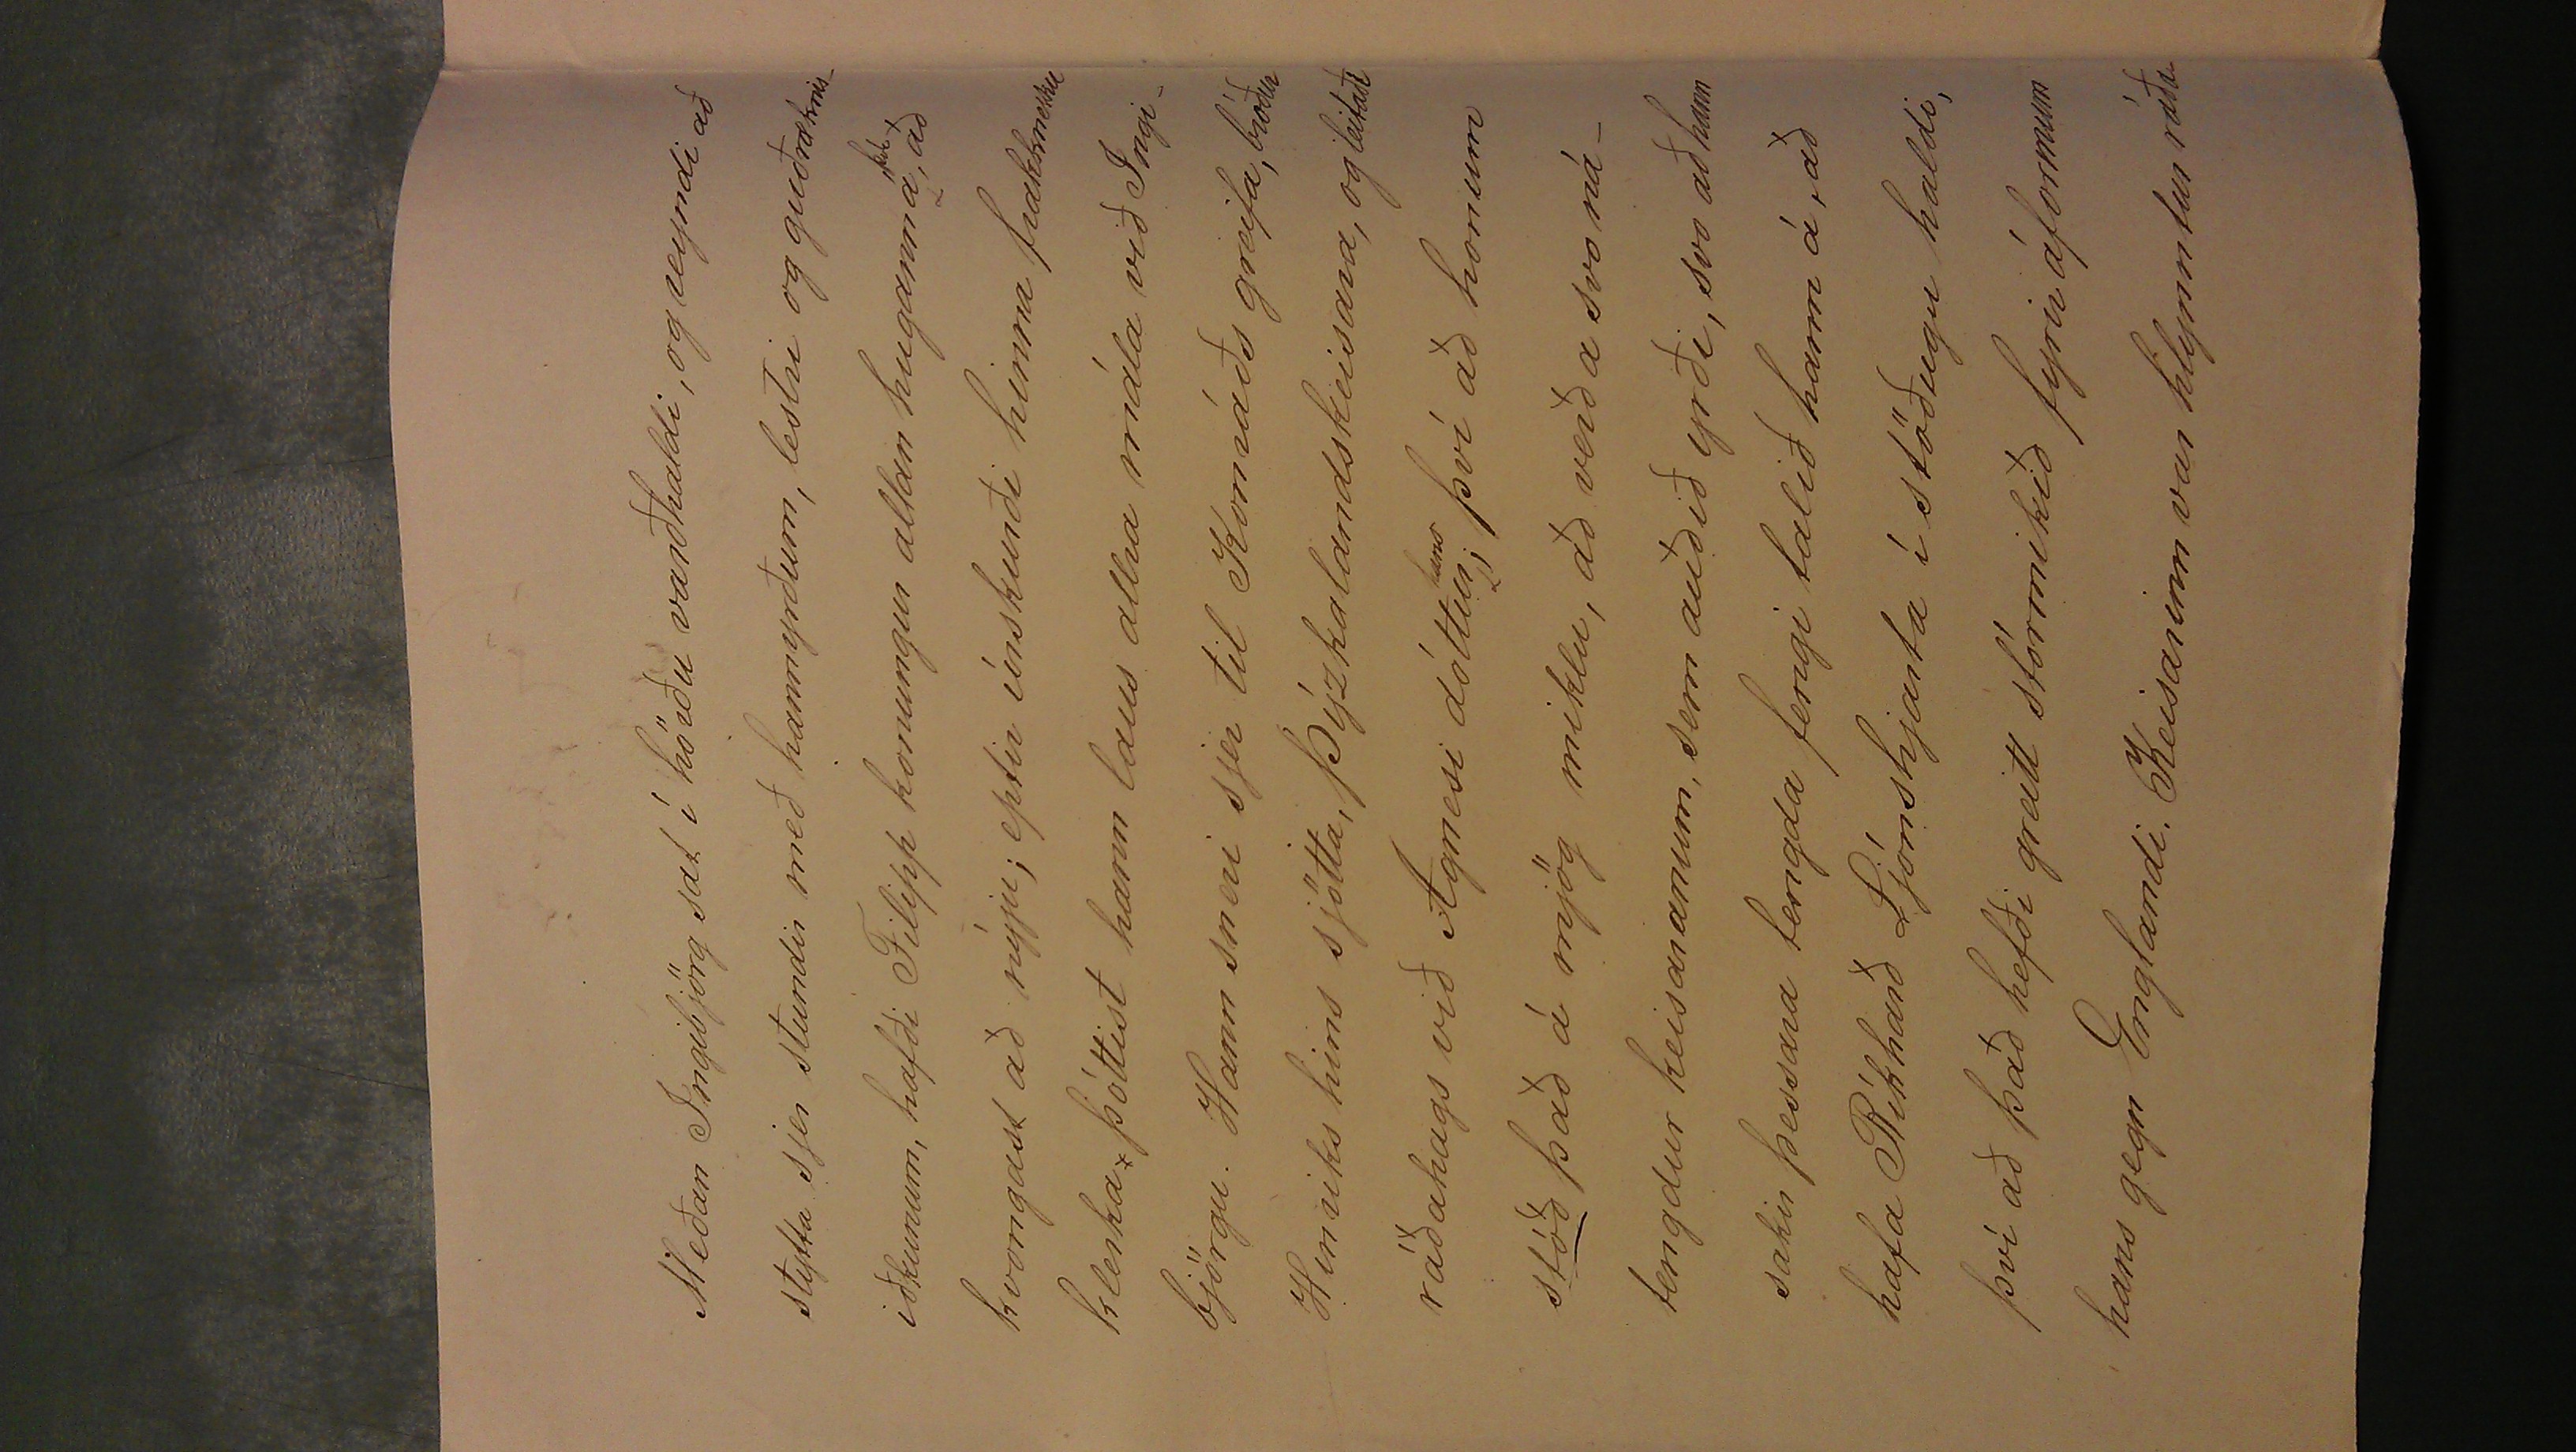 Meðan Ingibjörg sat í hörðu varðhaldi, og reyndi að
stytta sjer stundir með hannyrðum, lestri og guðræknis-
iðkunum, hafði Filipp konungur allan hugann á því, að
kvongast að nýju; eptir úrskurði hinna frakknesku
klerka þóttist hann laus allra mála við Ingi-
björgu. Hann sneri sjer til Konráðs greifa, bróður
Hinriks hins sjötta, Þýzkalandskeisara, og leitaði
ráðahags við Agnesi dóttur hans; því að honum
stóð það á mjög miklu, að verða svo ná-
tengdur keisaranum, sem auðið yrði, svo að hann
sakir þessara tengda fengi talið hann á, að
hafa Ríkharð Ljónshjarta í stöðugu haldi,
því að það hefði greitt stórmikið fyrir áformum
hans gegn Englandi. Keisarinn var hlynntur ráða-